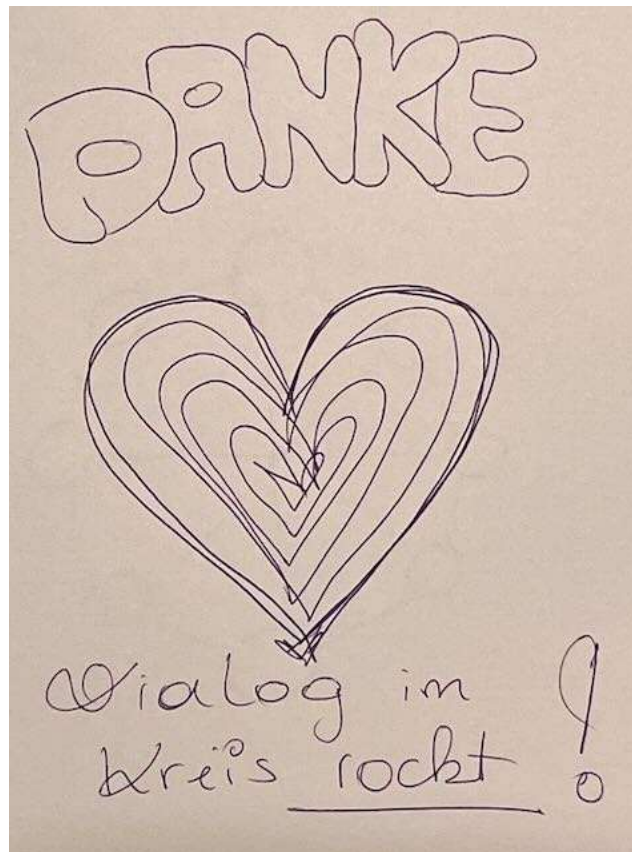 DANKE
Dialog im
Kreis rockt!